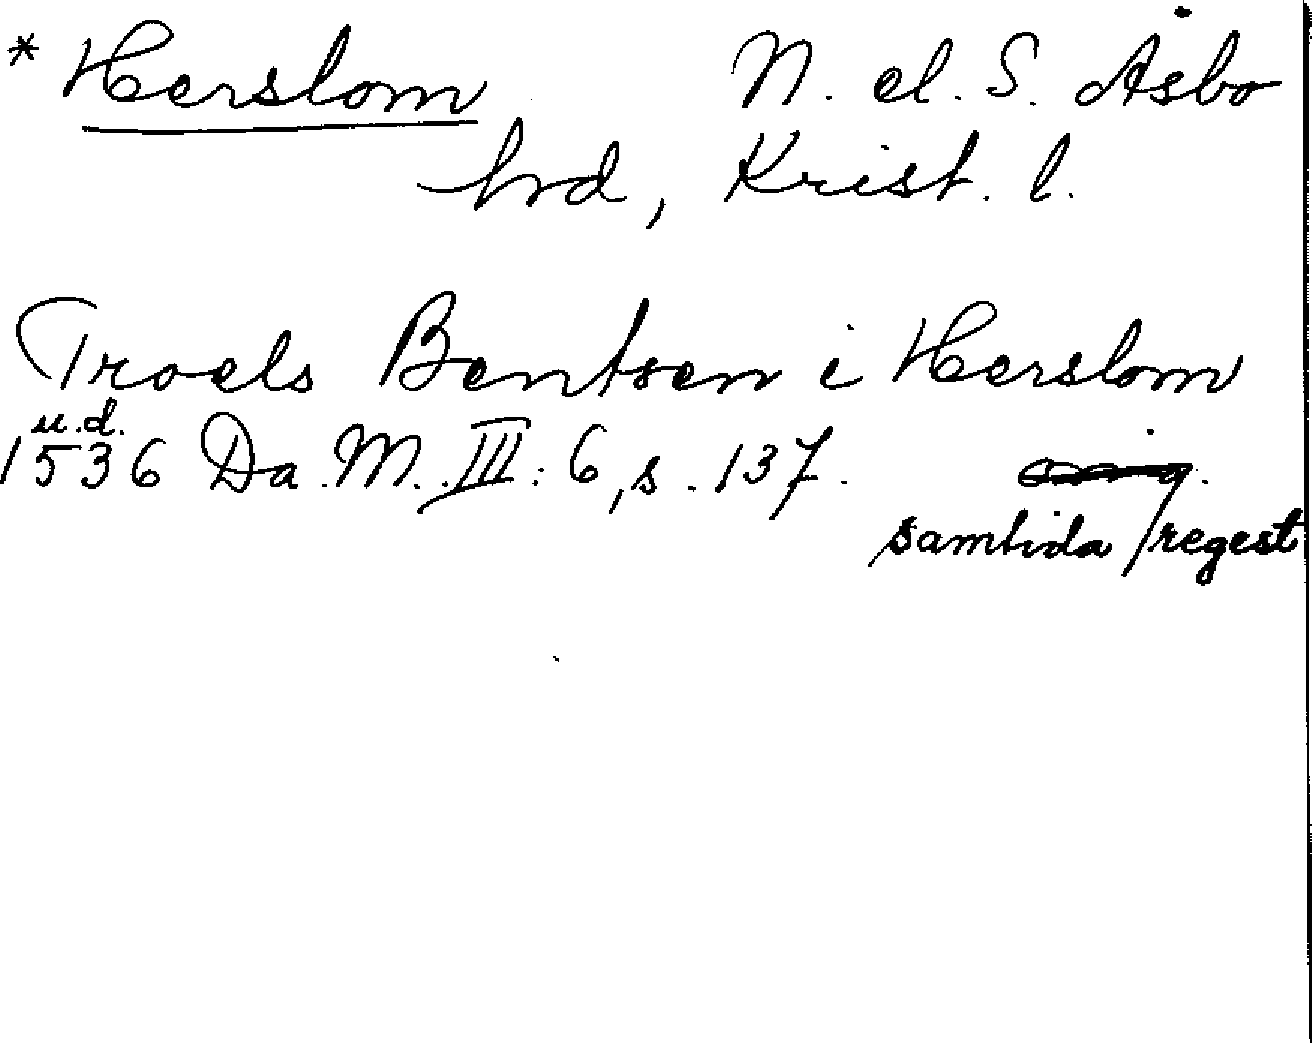 * Herslom N. el. S. Åsbo
hrd, Krist. l.
Troels Bentsen i Herslom
u.d.
1536 Da. M. III: 6, s. 137.
samtida regest